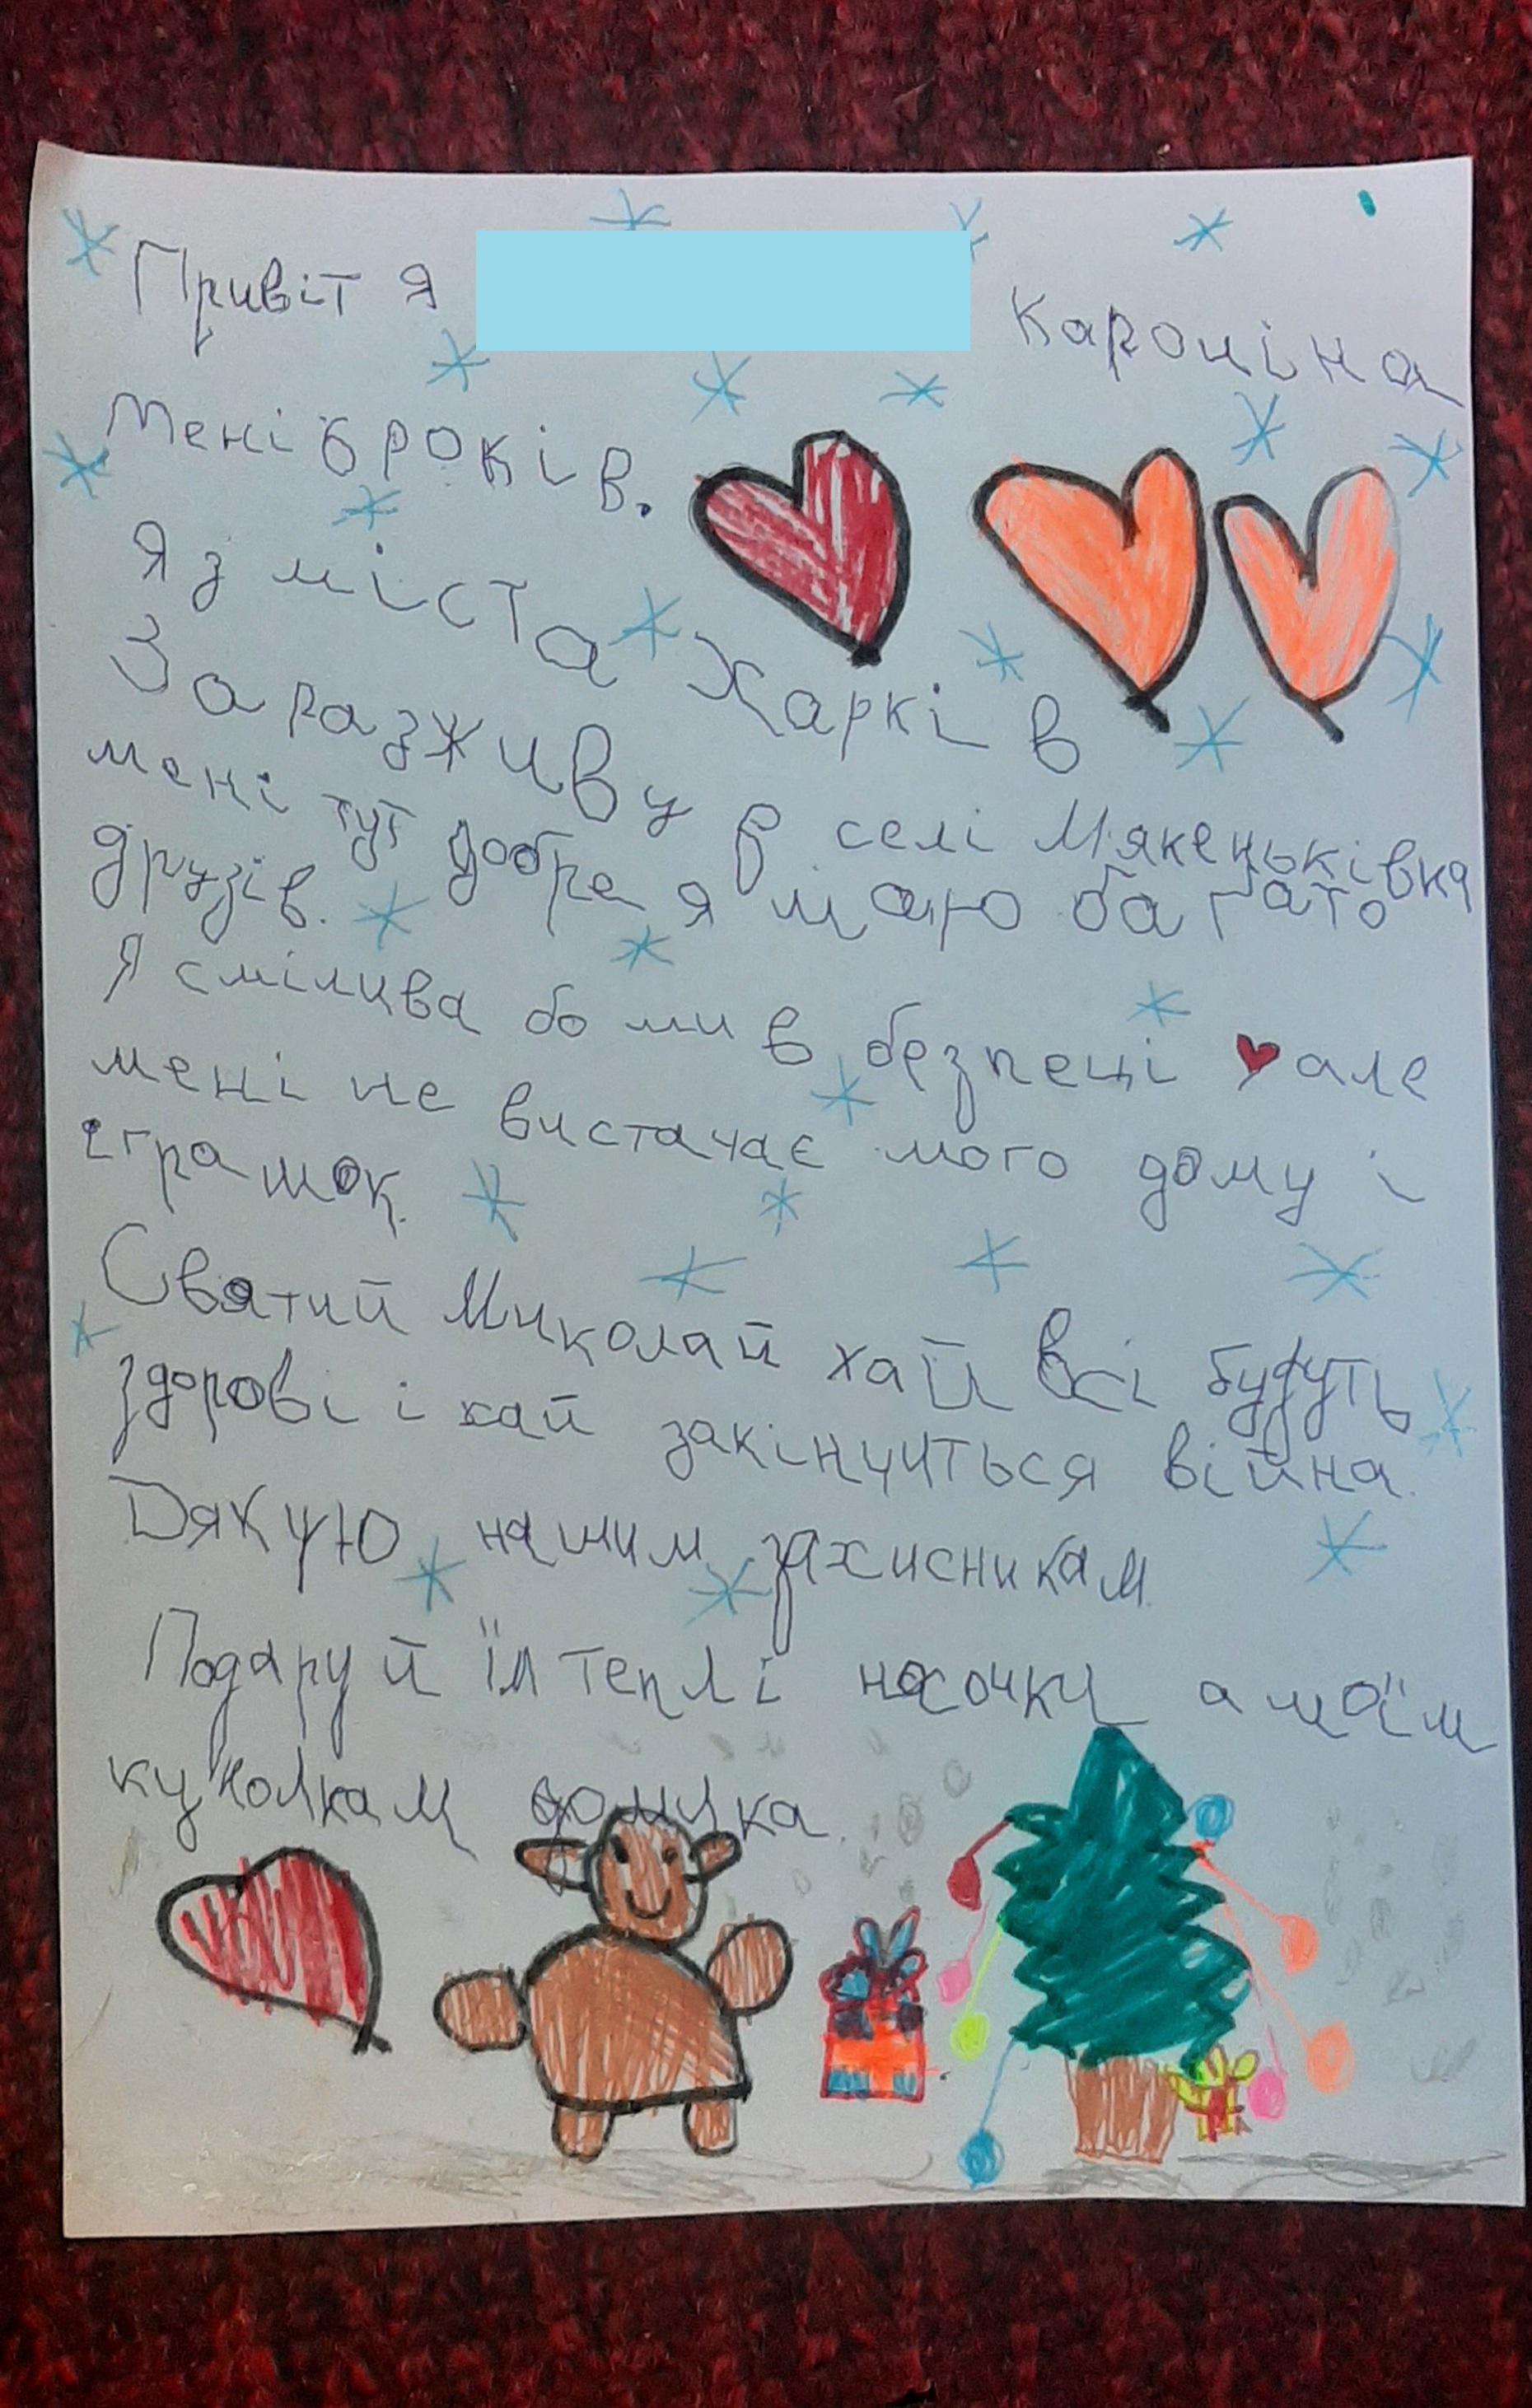 Привіт я Кароліна
Мені 6 років.
Я з міста Харків
Зараз живу в селі М'якеньківка
мені тут добре я маю багато
друзів.
Я смілива бо ми в безпеці але
мені не вистачає мого дому і
іграшок.
Святий Миколай хай всі будуть
здорові і хай закінчиться війна.
Дякую нашим захисникам.
Подаруй їм теплі носочки а моїм
куколкам домика.